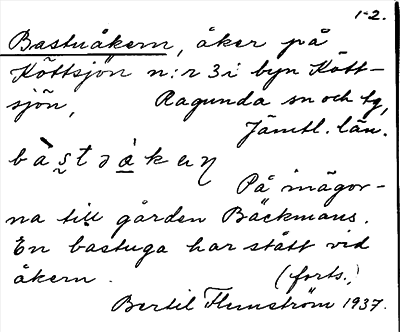 1-2.
Bastuåkern, åker på
Köttsjön n:r 3 i byn Kött-
sjön, Ragunda sn och tg,
Jämtl. län.
På inägor-
na till gården Bäckmans.
En bastuga har stått vid
åkern. (forts.)
Bertil Flemström 1937.